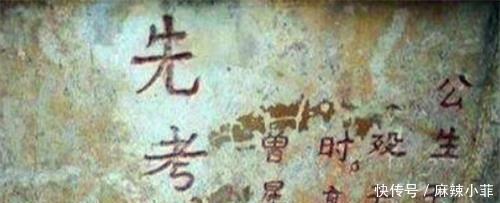 公生
殁
时。
曾
先考
快传号／麻辣小菲